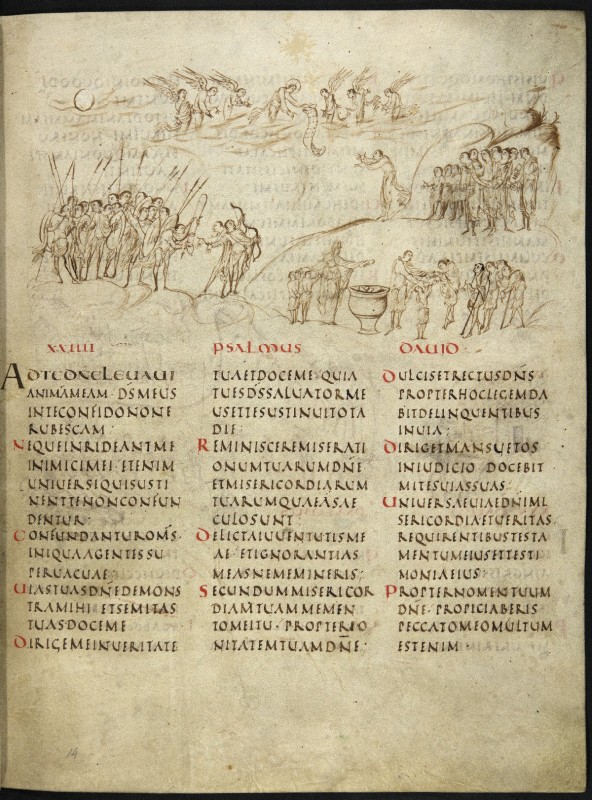 XXIIII PSALMUS DAUID
ADTEDNELEUAUI
ANIMAMEAM· DSMEUS
INTECONFIDONONE
RUBESCAM·
NEQUEINRIDEANTME
INIMICIMEI· ETENIM
UNIUERSIQUISUSTI
NENTTENONCONFUN
DENTUR·
CONFUNDANTUROMS·
INIQUAAGENTISSU
PERUACUAE·
UIASTUASDNEDEMONS
TRAMIHI· ETSEMITAS
TUASDOCEME·
DIRIGEMEINUERITATE
TUAETDOCEME· QUIA
TUESDSSALUATORME
USETTESUSTINUITOTA
DIE·
REMINISCEREMISERATI
ONUMTUARUMDNE
ETMISERICORDIARUM
TUARUMQUAEASAE
CULOSUNT·
DELICTAIUUENTUTISME
AE· ETIGNORANTIAS
MEASNEMEMINERIS·
SECUNDUMMISERICOR
DIAMTUAMMEMEN
TOMEITU· PROPTERBO
NITATEMTUAMDNE·
DULCISETRECTUSDNS·
PROPTERHOCLEGEMDA
BITDELINQUENTIBUS
INUIA·
DIRIGETMANSUETOS
INIUDICIO· DOCEBIT
MITESUIASSUAS·
UNIUERSAEUIAEDNIMI
SERICORDIAETUERITAS·
REQUIRENTIBUSTESTA
MENTUMEIUSETTESTI
MONIAEIUS·
PROPTERNOMENTUUM
DNE· PROPICIABERIS
PECCATOMEOMULTUM
ESTENIM·
14